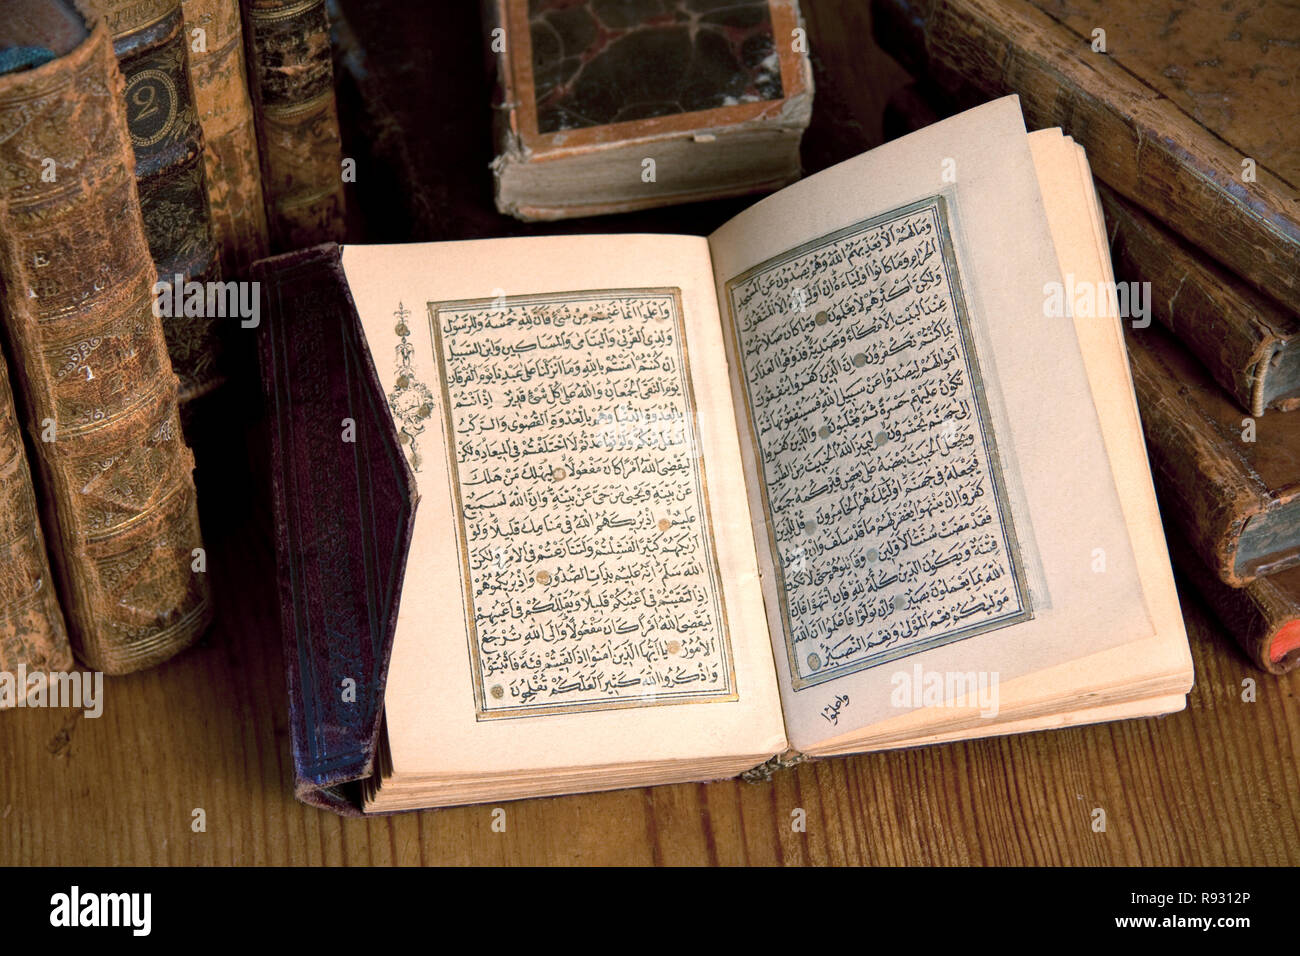 2
وَمَا لَهُمْ اَلَّا يُعَذِّبَهُمُ اللّٰهُ وَهُمْ يَصُدُّونَ عَنِ الْمَسْجِدِ
الْحَرَامِ وَمَا كَانُوا اَوْلِيَاءَهُ اِنْ اَوْلِيَاؤُهُ اِلَّا الْمُتَّقُونَ
وَلٰكِنَّ اَكْثَرَهُمْ لَا يَعْلَمُونَ وَمَا كَانَ صَلَاتُهُمْ
عِنْدَ الْبَيْتِ اِلَّا مُكَاءً وَتَصْدِيَةً فَذُوقُوا الْعَذَابَ
بِمَا كُنْتُمْ تَكْفُرُونَ اِنَّ الَّذِينَ كَفَرُوا يُنْفِقُونَ
اَمْوَالَهُمْ لِيَصُدُّوا عَنْ سَبِيلِ اللّٰهِ فَسَيُنْفِقُونَهَا ثُمَّ
تَكُونُ عَلَيْهِمْ حَسْرَةً ثُمَّ يُغْلَبُونَ وَالَّذِينَ كَفَرُوا
اِلٰى جَهَنَّمَ يُحْشَرُونَ لِيَمِيزَ اللّٰهُ الْخَبِيثَ مِنَ الطَّيِّبِ
وَيَجْعَلَ الْخَبِيثَ بَعْضَهُ عَلٰى بَعْضٍ فَيَرْكُمَهُ جَمِيعًا
فَيَجْعَلَهُ فِي جَهَنَّمَ اُولٰئِكَ هُمُ الْخَاسِرُونَ قُلْ لِلَّذِينَ
كَفَرُوا اِنْ يَنْتَهُوا يُغْفَرْ لَهُمْ مَا قَدْ سَلَفَ وَاِنْ يَعُودُوا
فَقَدْ مَضَتْ سُنَّتُ الْاَوَّلِينَ وَقَاتِلُوهُمْ حَتّٰى لَا تَكُونَ
فِتْنَةٌ وَيَكُونَ الدِّينُ كُلُّهُ لِلّٰهِ فَاِنِ انْتَهَوْا فَاِنَّ
اللّٰهَ بِمَا يَعْمَلُونَ بَصِيرٌ وَاِنْ تَوَلَّوْا فَاعْلَمُوا اَنَّ اللّٰهَ
مَوْلٰيكُمْ نِعْمَ الْمَوْلٰى وَنِعْمَ النَّصِيرُ
واعلموا
وَاعْلَمُوا اَنَّمَا غَنِمْتُمْ مِنْ شَئٍ فَاَنَّ لِلّٰهِ خُمُسَهُ وَلِلرَّسُولِ
وَلِذِى الْقُرْبٰى وَالْيَتَامٰى وَالْمَسَاكِينِ وَابْنِ السَّبِيلِ
اِنْ كُنْتُمْ اٰمَنْتُمْ بِاللّٰهِ وَمَا اَنْزَلْنَا عَلٰى عَبْدِنَا يَوْمَ الْفُرْقَانِ
يَوْمَ الْتَقَى الْجَمْعَانِ وَاللّٰهُ عَلٰى كُلِّ شَئٍ قَدِيرٌ اِذْ اَنْتُمْ
بِالْعُدْوَةِ الدُّنْيَا وَهُمْ بِالْعُدْوَةِ الْقُصْوٰى وَالرَّكْبُ
اَسْفَلَ مِنْكُمْ وَلَوْ تَوَاعَدْتُمْ لَاخْتَلَفْتُمْ فِى الْمِيعَادِ وَلٰكِنْ
لِيَقْضِىَ اللّٰهُ اَمْرًا كَانَ مَفْعُولًا لِيَهْلِكَ مَنْ هَلَكَ
عَنْ بَيِّنَةٍ وَيَحْيٰى مَنْ حَىَّ عَنْ بَيِّنَةٍ وَاِنَّ اللّٰهَ لَسَمِيعٌ
عَلِيمٌ اِذْ يُرِيكَهُمُ اللّٰهُ فِى مَنَامِكَ قَلِيلًا وَلَوْ
اَرٰيكَهُمْ كَثِيرًا لَفَشِلْتُمْ وَلَتَنَازَعْتُمْ فِى الْاَمْرِ وَلٰكِنَّ
اللّٰهَ سَلَّمَ اِنَّهُ عَلِيمٌ بِذَاتِ الصُّدُورِ وَاِذْ يُرِيكُمُوهُمْ
اِذِ الْتَقَيْتُمْ فِى اَعْيُنِكُمْ قَلِيلًا وَيُقَلِّلُكُمْ فِى اَعْيُنِهِمْ
لِيَقْضِىَ اللّٰهُ اَمْرًا كَانَ مَفْعُولًا وَاِلَى اللّٰهِ تُرْجَعُ
الْاُمُورُ يَا اَيُّهَا الَّذِينَ اٰمَنُوا اِذَا لَقِيتُمْ فِئَةً فَاثْبُتُوا
وَاذْكُرُوا اللّٰهَ كَثِيرًا لَعَلَّكُمْ تُفْلِحُونَ
alamy
Image ID: R9312P
www.alamy.com